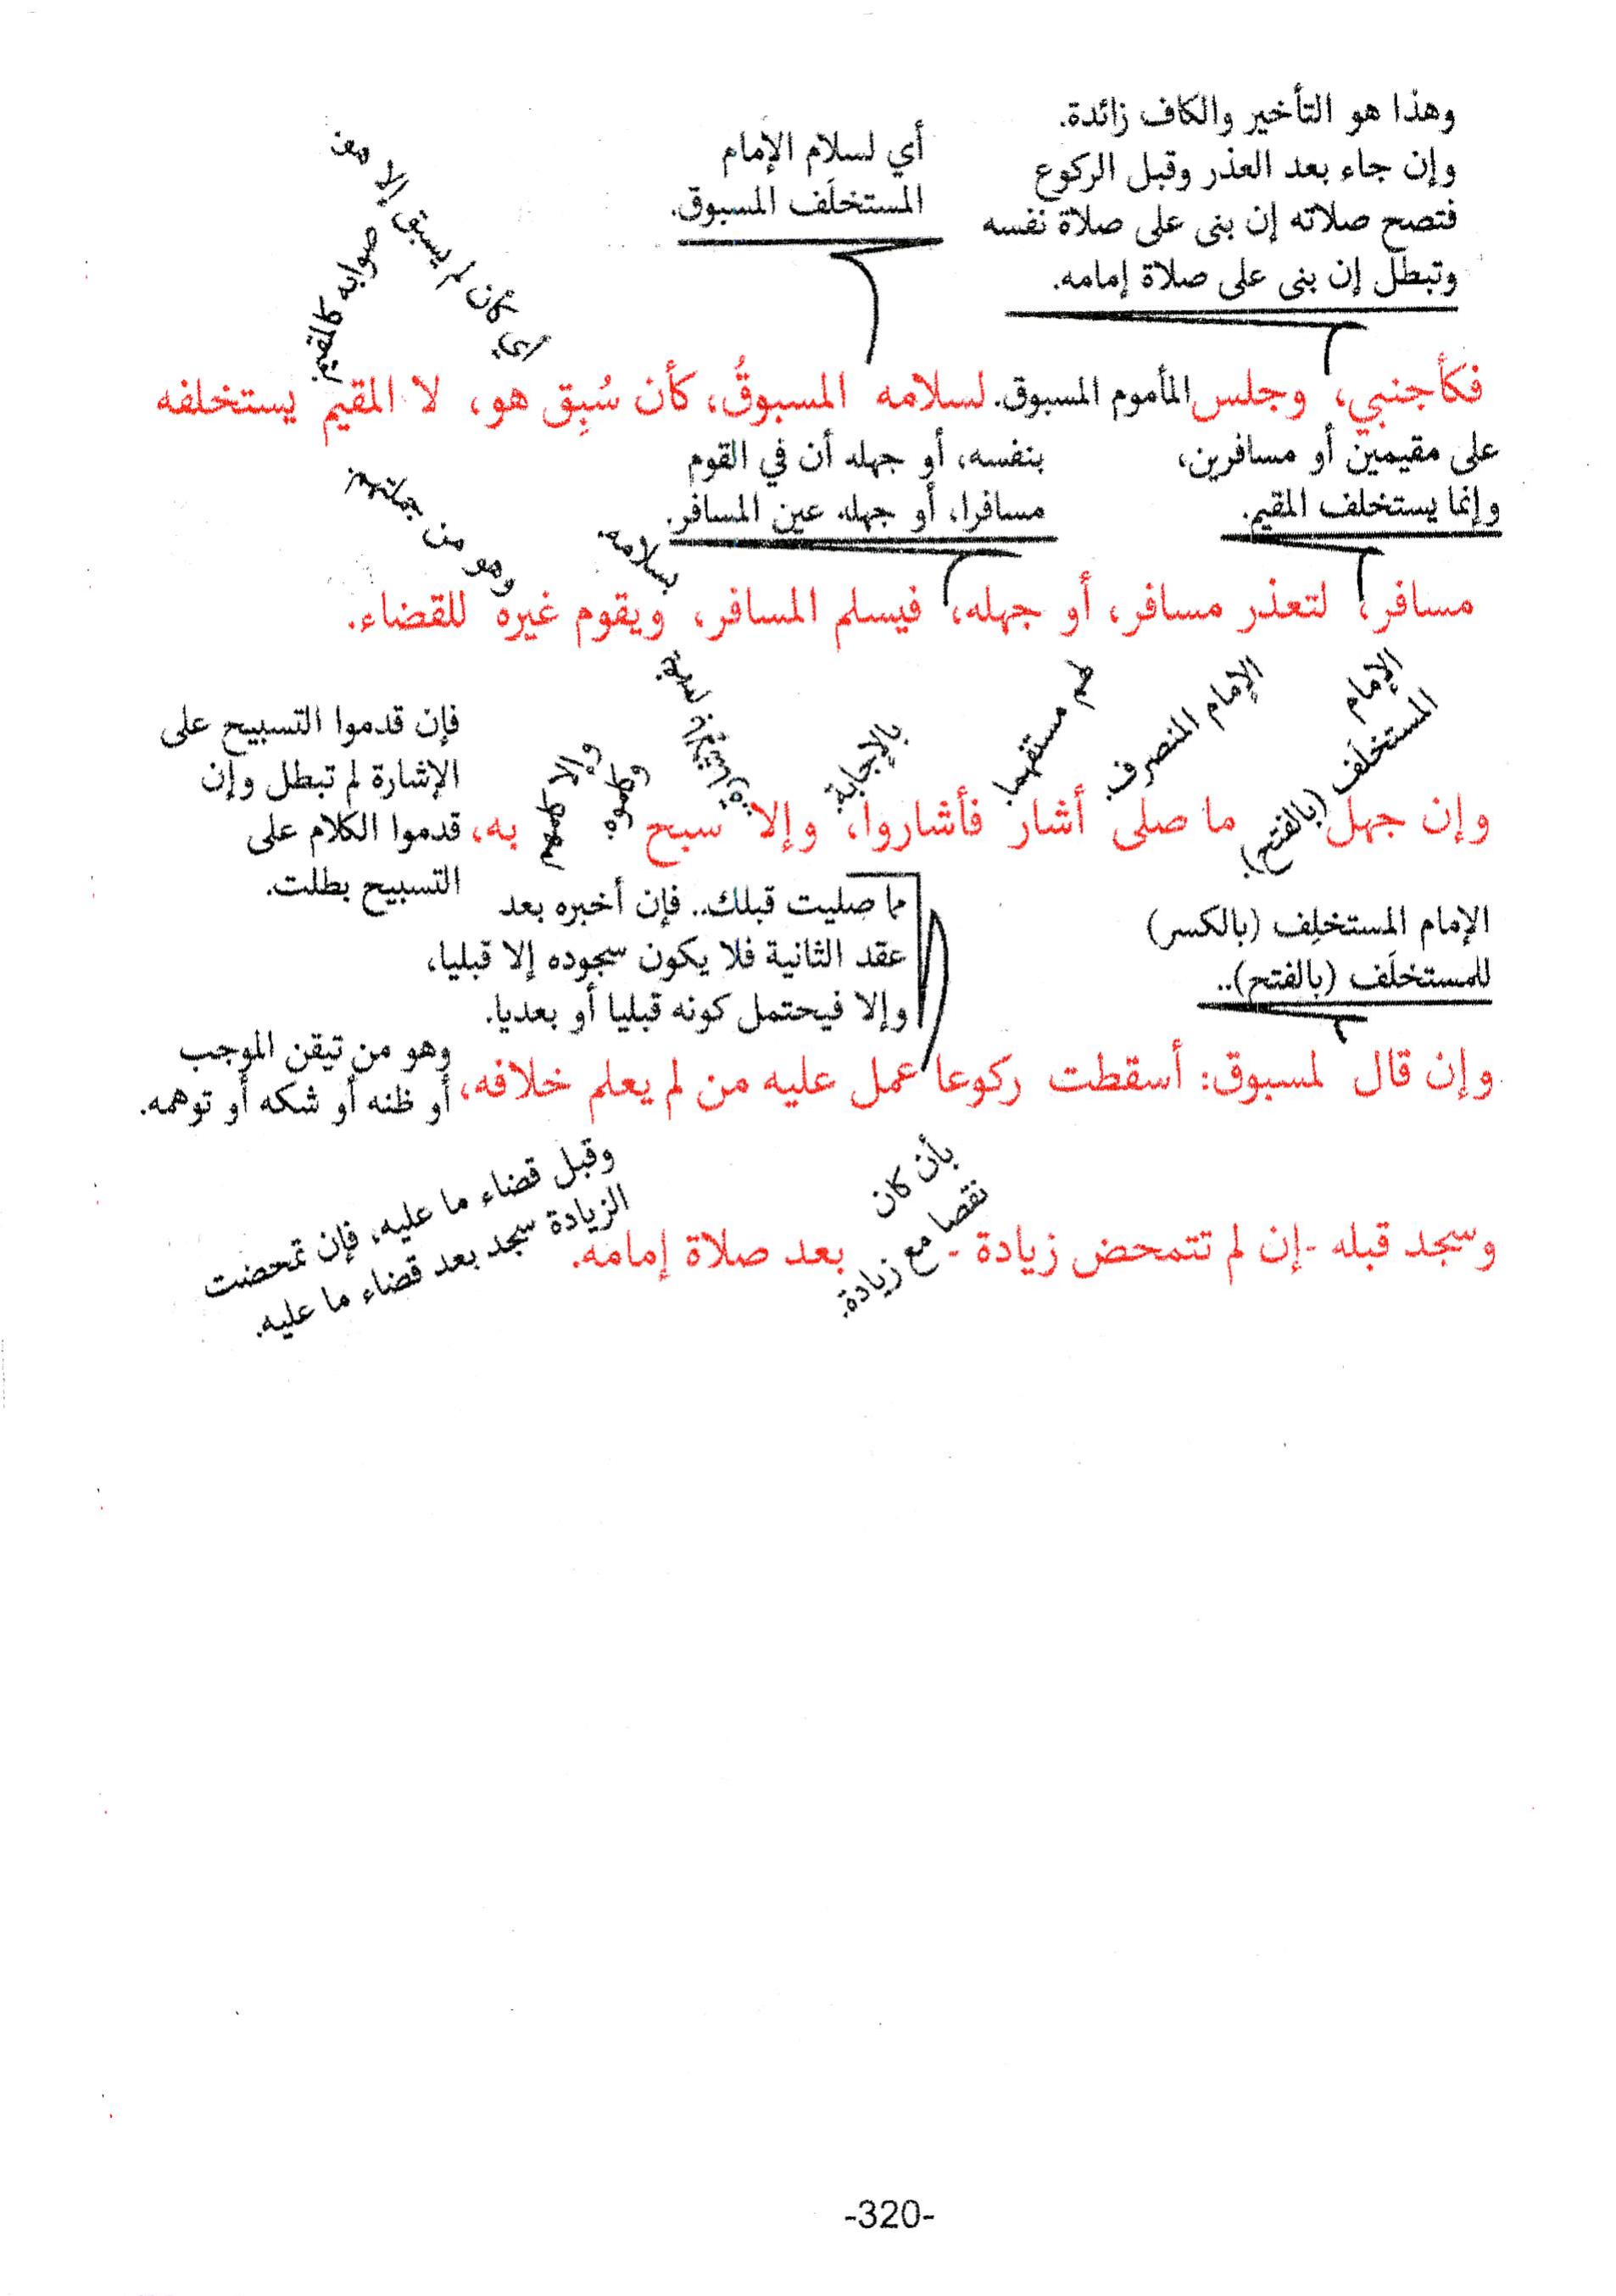 وهذا هو التأخير والكاف زائدة.
وإن جاء بعد العذر وقبل الركوع
فتصح صلاته إن بنى على صلاة نفسه
وتبطل إن بنى على صلاة إمامه.
أي لسلام الإمام
المستخلَف المسبوق.
أي كأن لم يسبق إلا
صوابه كالمقيم.
فكأجنبي، وجلس المأموم المسبوق. لسلامه المسبوقُ، كأن سُبِق هو، لا المقيم يستخلفه
على مقيمين أو مسافرين،
وإنما يستخلف المقيم.
بنفسه، أو جهله أن في القوم
مسافرا، أو جهله عين المسافر.
بسلامه.
وهو من جملتهم.
مسافر، لتعذر مسافر، أو جهله، فيسلم المسافر، ويقوم غيره للقضاء.
الإمام
المستخلَف (بالفتح).
الإمام المنصرف.
لهم مستفهما.
بالإجابة.
وكلموه.
وإلا كلمهم
فإن قدموا التسبيح على
الإشارة لم تبطل وإن
قدموا الكلام على
التسبيح بطلت.
وإن جهل ما صلى أشار فأشاروا، وإلا سبح به،
الإمام المستخلِف (بالكسر)
للمستخلَف (بالفتح)..
مما صليت قبلك.. فإن أخبره بعد
عقد الثانية فلا يكون سجوده إلا قبليا،
وإلا فيحتمل كونه قبليا أو بعديا.
وإن قال لمسبوق: أسقطت ركوعا عمل عليه من لم يعلم خلافه،
وهو من تيقن الموجب
أو ظنه أو شكه أو توهمه.
بأن كان
نقصا مع زيادة.
وقبل قضاء ما عليه، فإن تمحضت
الزيادة سجد بعد قضاء ما عليه.
وسجد قبله -إن لم تتمحض زيادة - بعد صلاة إمامه.
-320-